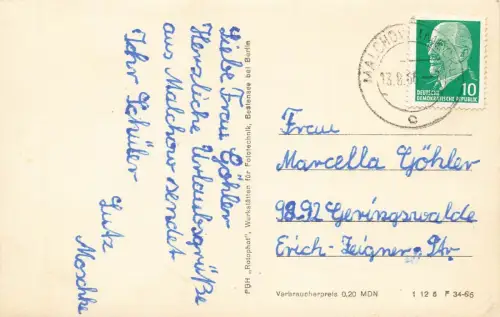 Liebe Frau Göhler
Herzliche Urlaubsgrüße
aus Malchow sendet
Ihr Schüler
Lutz
Moschke
PGH „Rotophot", Werkstätten für Fototechnik, Bestensee bei Berlin
MALCHOW
13.8.
c
DEUTSCHE
DEMOKRATISCHE REPUBLIK
10
Frau
Marcella Göhler
9292 Geringswalde
Erich-Zeigner-Str.
Verbraucherpreis 0,20 MDN
1 12 8 F 34-66